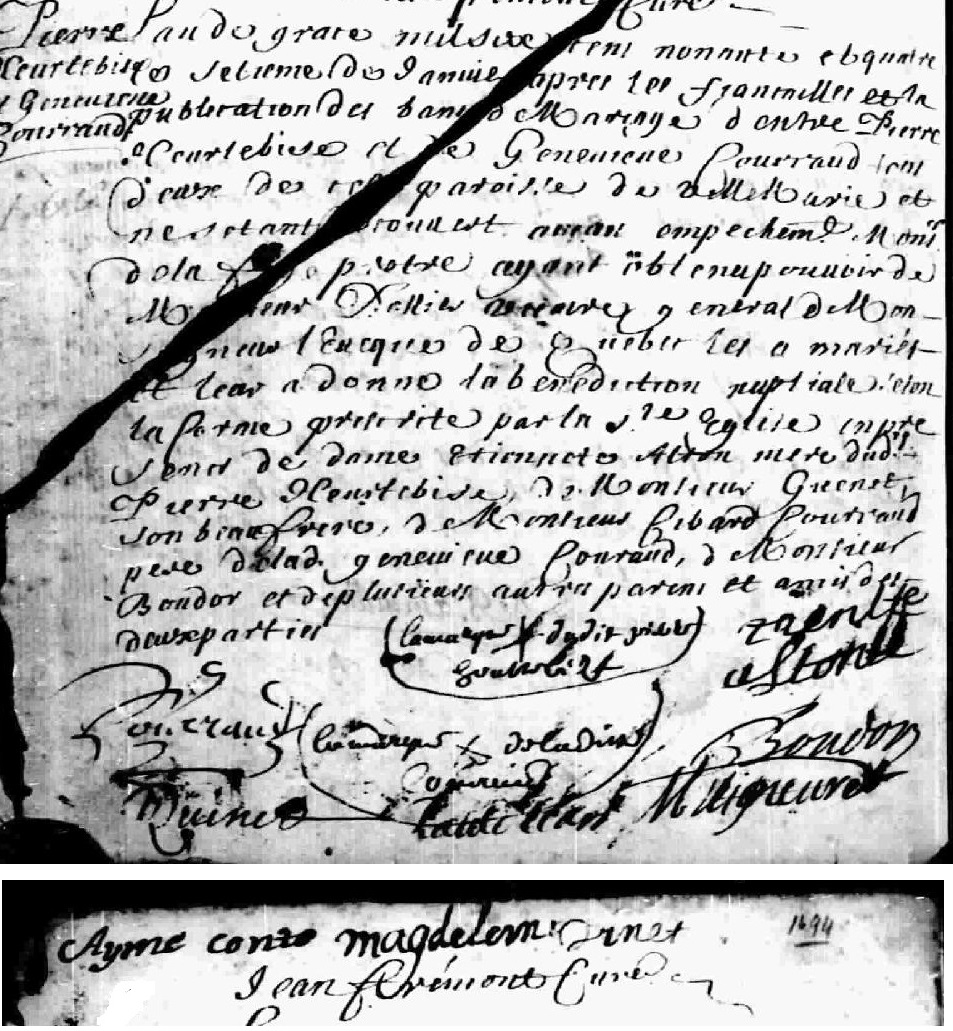 Cure
Pierre
heurtebise
et Genevieve
Courraud
Lan de grace mil six cent nonante et quatre
le setieme de Janvier apres les fiancailles et la
publication des bans de Mariage d entre Pierre
heurtebise et de Genevieve Courraud tous
deux de cette paroisse de villeMarie et
ne setant trouvert aucun empechemt Monsr
de la prestre ayant obtenu pouvoir de
Monsieur Dollier vicaire general de Mon-
seigneur l'Eveque de Quebec les a mariés
et leur a donné la benediction nuptiale selon
la forme prescrite par la Ste Eglise en pre
sence de dame Etiennete Alton mere dudit
Pierre Heurtebise, de Monsieur Guenet
son beaufrere, de Monsieur Cibard Courraud
pere de lad. genevieve Couraud, de Monsieur
Boudor et de plusieurs autres parens et amis des
deux parties
la marque X dudit pierre
heurtebise
Courraud
la marque X de ladite
Couraud
Boudor
Migneuret
Ayme conte magdelene Guinet
1694
Jean fremont Curé